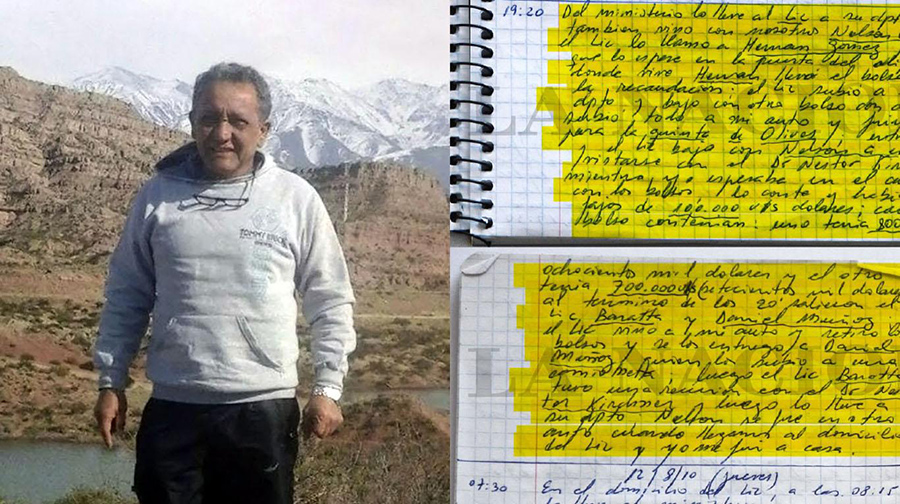 TOMMY
19:20 Del ministerio lo lleve al Lic a su dpto
tambien vino con nosotros Nelson
el Lic lo llamo a Hernan Gomez
que lo espere en la puerta del
donde vive Hernan, llevó el bolso
la recaudacion: el Lic subio a
dpto y bajo con otro bolso
subio todo a mi auto y
para la quinta de Olivos,
el Lic bajo con Nelson a
tristarse con el Dr Nestor
mientras yo esperaba en el
con los bolsos
fajos de 100.000 U$S dolares;
bolso contenian: uno tenia 800
LA NACION
ochocientos mil dolares y el otro
tenia 700.000U$S (setecientos mil dolares
al termino de los 20' salieron el
Lic Baratta y Daniel Muñoz
el Lic vino a mi auto y retiro
bolsos y se los entrego a Daniel
Muñoz quien los subio a una
camioneta luego el Lic Baratta
tuvo una reunion con el Dr
tor Kirchner luego lo lleve a
su dpto Nelson se fue en otro
auto cuando llegamos al domicilio
del Lic y yo me fui a casa.
12/8/10 (jueves)
07:30 En el domicilio del Lic, a las 08:15